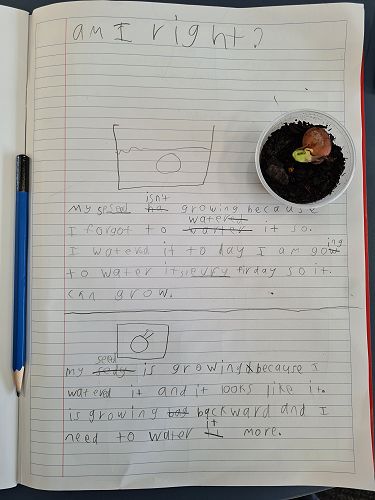 am I right?
my seed isn't growing because
I forgot to water it so.
I waterd it to day I am going
to water it evury firday so it
can grow.
my seed is growing because I
waterd it and it looks like it
is growing backward and I
need to water it more.